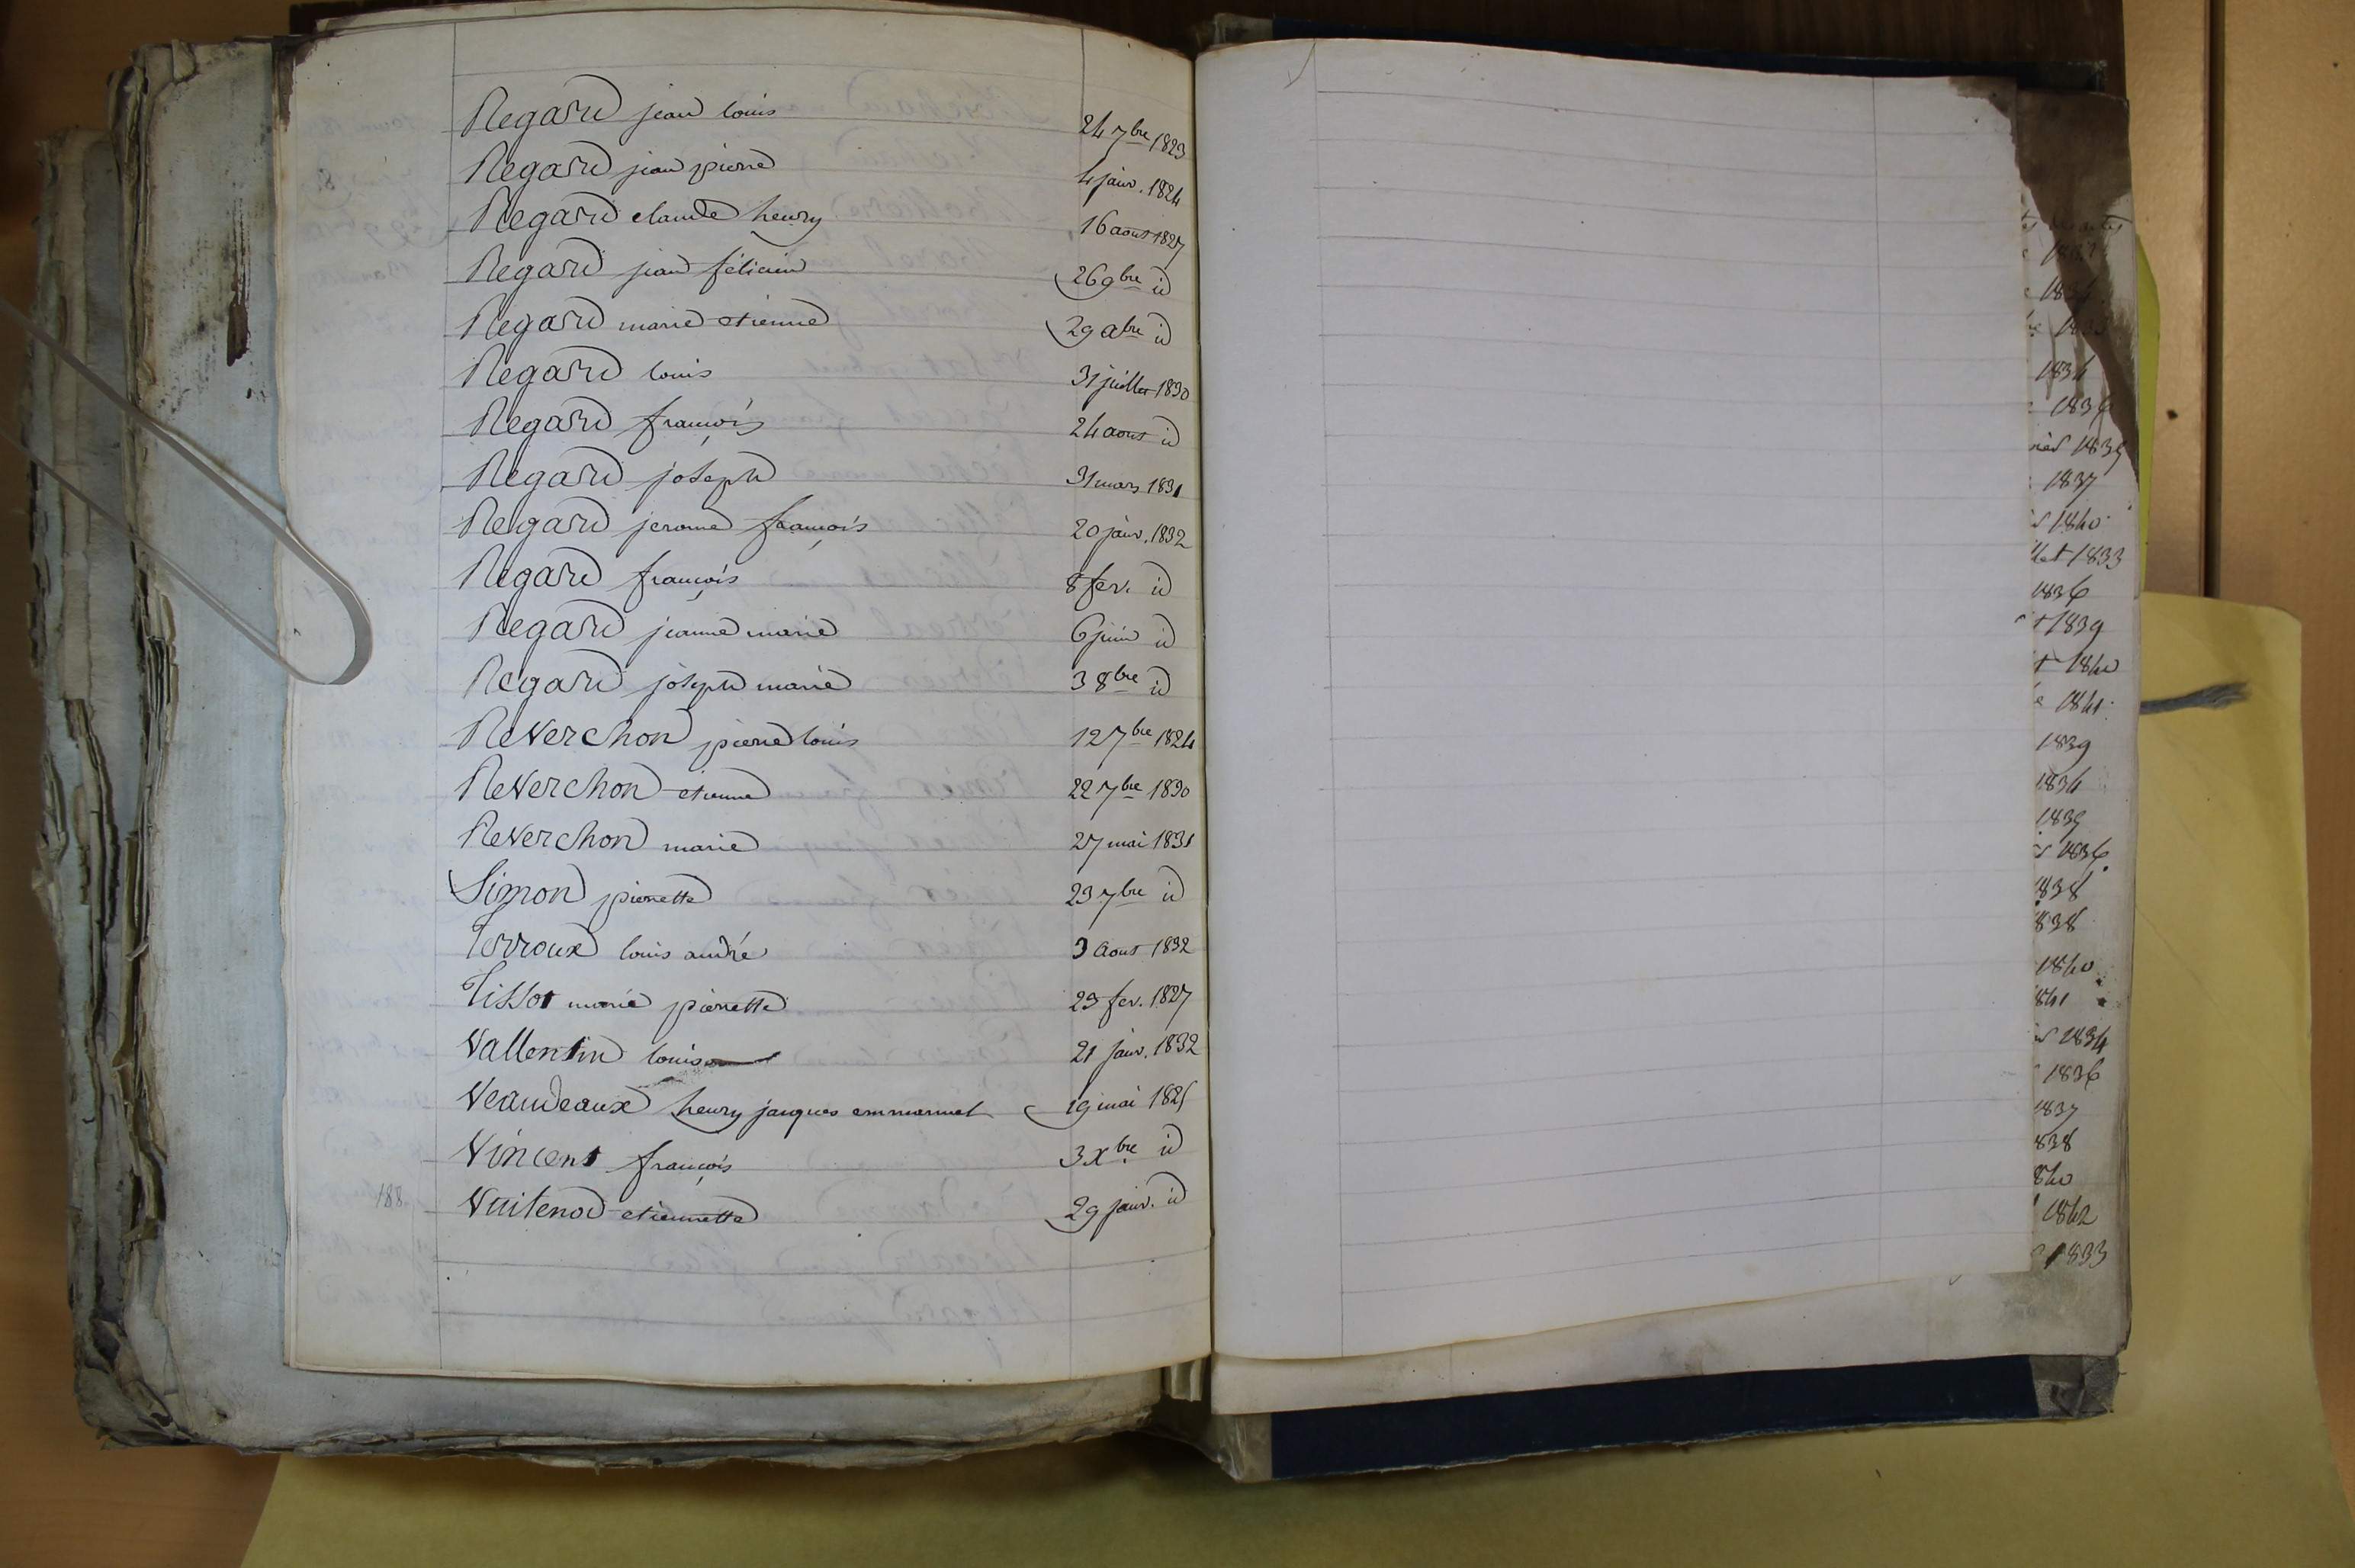 Regard jean louis 24 7bre 1823
Regard jean pierre 4 janv. 1824
Regard claude henry 16 aout 1827
Regard jean félicien 26 9bre id
Regard marie etienne 29 id
Regard louis 31 juillet 1830
Regard françois 24 aout id
Regard joseph 31 mars 1831
Regard jerome françois 20 janv. 1832
Regard françois 8 fev. id
Regard jeanne marie 6 juin id
Regard joseph marie 3 8bre id
Reverchon pierre louis 12 7bre 1824
Reverchon etienne 22 7bre 1830
Reverchon marie 27 mai 1831
Simon pierrette 23 7bre id
Terroux louis andré 3 Aout 1832
Tissot marie pierrette 23 fev. 1827
Vallentin louis 21 janv. 1832
Veaudeaux henry jacques emmanuel 19 mai 1825
Vincent françois 3 Xbre id
Vuitenod etiennette 29 janv. id
1834
1836
1837
1840
1833
1836
1839
1840
1841
1839
1834
1839
1836
1838
838
1840
841
1834
1836
1837
838
840
1842
1833